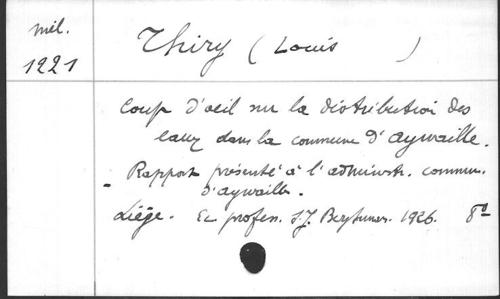 mil.
1221
Thiry (Louis )
Coup d'oeil sur la distribution des
eaux dans la commune d'Aywaille.
- Rapport présenté à l'administr. commun.
d'Aywaille.
Liège. Ec profess. S.J. 1926. 8°